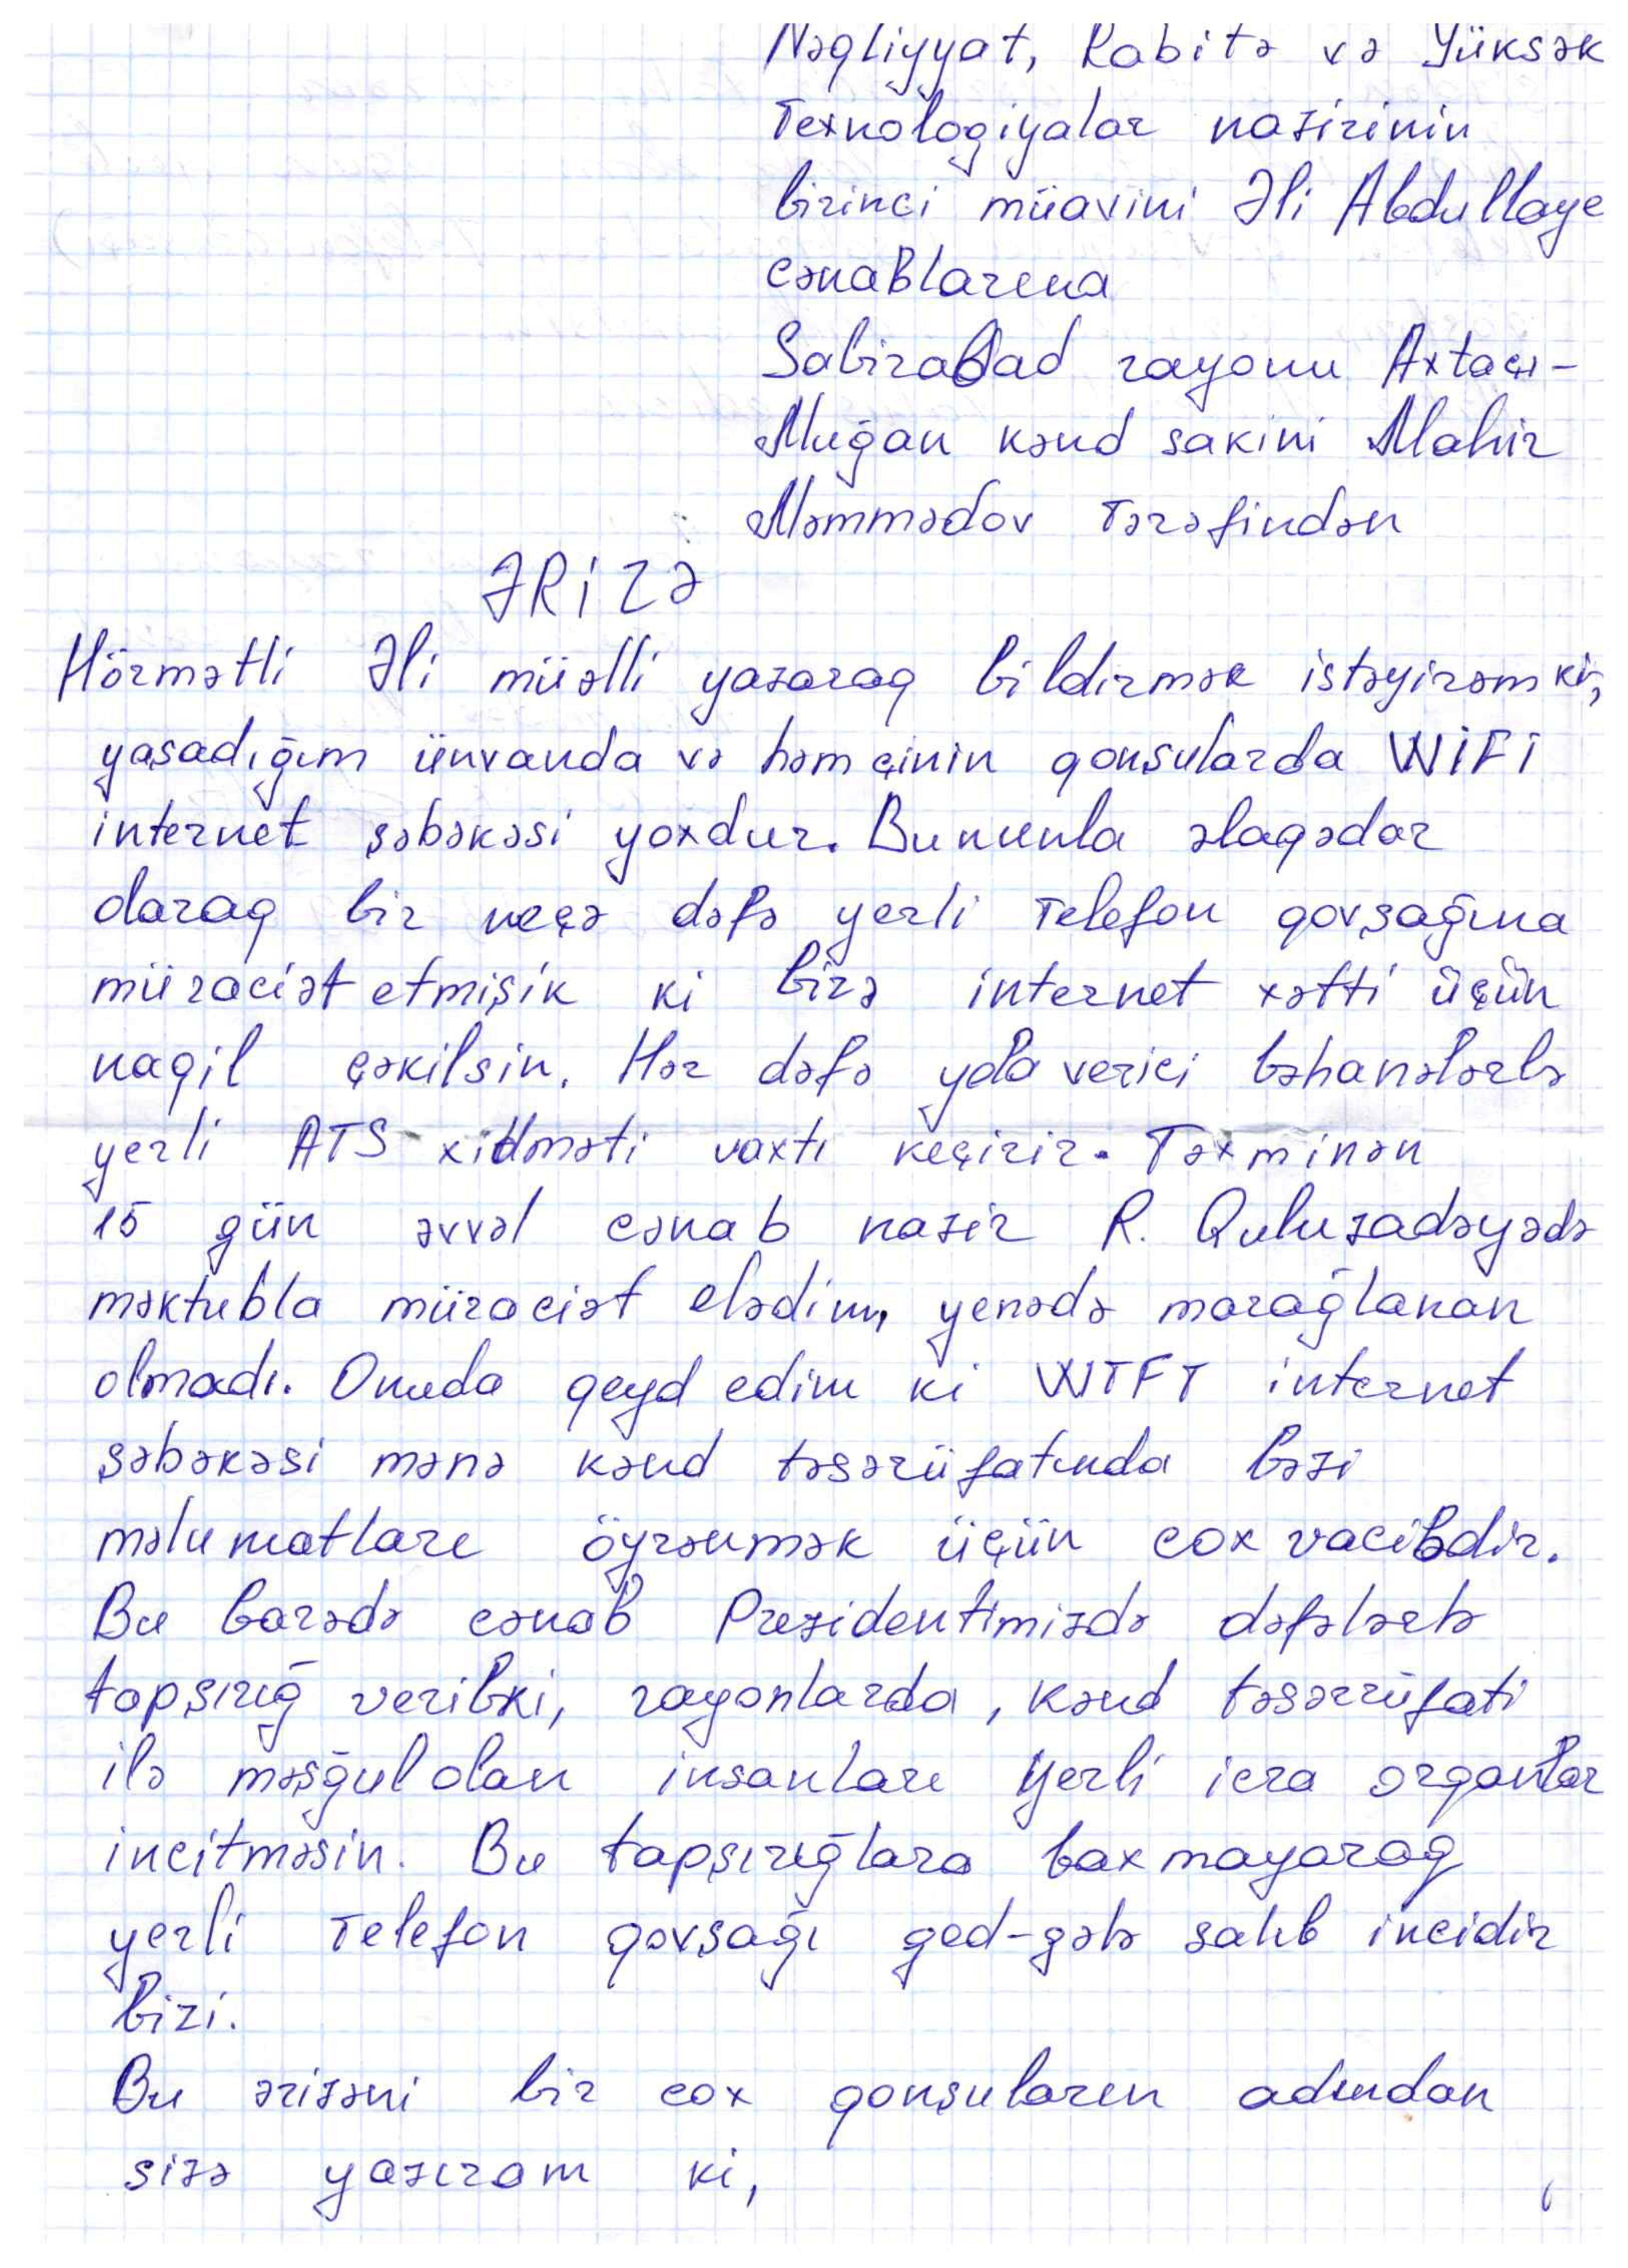 Nəqliyyat, Rabitə və Yüksək
Texnologiyalar nazirinin
birinci müavini Əli Abdullaye
cənablarına
Sabirabad rayonu Axtaçı-
Muğan kənd sakini Mahir
Məmmədov tərəfindən
ƏRİZƏ
Hörmətli Əli müəlli yazaraq bildirmək istəyirəm ki,
yaşadığım ünvanda və həmçinin qonşularda WİFİ
internet şəbəkəsi yoxdur. Bununla əlaqədar
olaraq bir neçə dəfə yerli Telefon qovşağına
müraciət etmişik ki bizə internet xətti üçün
naqil çəkilsin. Hər dəfə yola verici bəhanələrlə
yerli ATS xidməti vaxtı keçirir. Təxminən
15 gün əvvəl cənab nazir R. Quluzadəyədə
məktubla müraciət elədim, yenədə marağlanan
olmadı. Onuda qeyd edim ki WIFI internet
şəbəkəsi mənə kənd təsərüfatında bəzi
məlumatları öyrənmək üçün cox vacibdir.
Bu barədə cənab Prezidentimizdə dəfələrlə
tapşırığ veribki, rayonlarda, kənd təsərrüfati
ilə məşğul olan insanları yerli icra orqanlar
incitməsin. Bu tapşırığlara baxmayaraq
yerli Telefon qovşağı ged-gələ salıb incidir
bizi.
Bu ərizəni bir cox qonşuların adından
sizə yazıram ki,